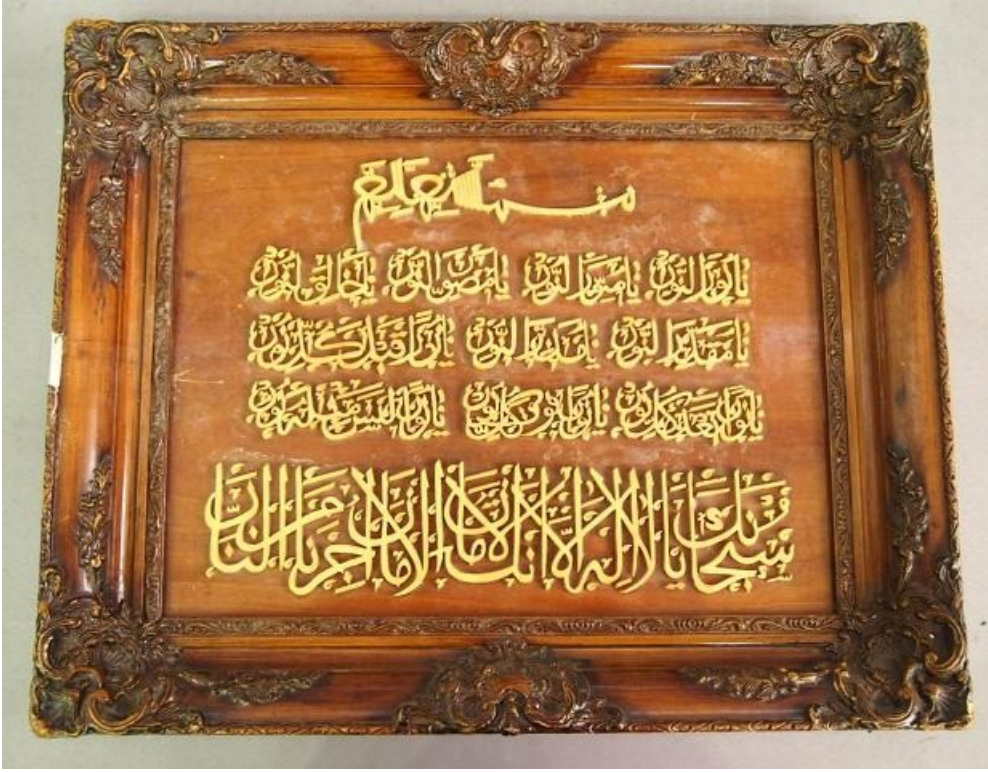 يا نور النور يا منور النور يا مصور النور يا خالق النور
يا مقدر النور يا مدبر النور يا نورا قبل كل نور
يا نورا بعد كل نور يا نورا فوق كل نور يا نورا ليس مثله نور
سبحانك يا لا اله الا انت الامان الامان اجرنا من النار يا رب